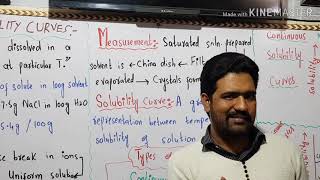 Made with KINEMASTER
LITY CURVES-
dissolved in a
at particular T."
of solute in 100g solvent
7.5g NaCl in 100g H2O
5.4g / 100g
se break in ions-
Uniform solu
Measurement:- Saturated soln. prepared
solvent is ← China dish ← Filt
evaporated → Crystals form
Solubility Curve:- A g
representation between tempe
solubility of solution
Types o
Contin
Continuous
Solubility
Curves
Solubility